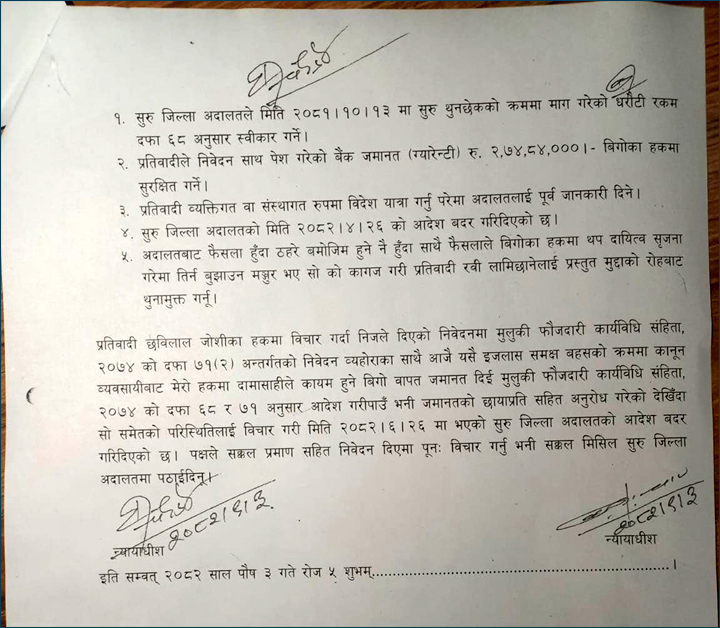 १. सुरु जिल्ला अदालतले मिति २०८१।१०।१३ मा सुरु थुनछेकको क्रममा माग गरेको धरौटी रकम
दफा ६८ अनुसार स्वीकार गर्ने।
२. प्रतिवादीले निवेदन साथ पेश गरेको बैंक जमानत (ग्यारेन्टी) रु. २,७४,८४,०००।- बिगोका हकमा
सुरक्षित गर्ने।
३. प्रतिवादी व्यक्तिगत वा संस्थागत रुपमा विदेश यात्रा गर्नु परेमा अदालतलाई पूर्व जानकारी दिने।
४. सुरु जिल्ला अदालतको मिति २०८२।४।२६ को आदेश बदर गरिदिएको छ।
५. अदालतबाट फैसला हुँदा ठहरे बमोजिम हुने नै हुँदा साथै फैसलाले बिगोका हकमा थप दायित्व सृजना
गरेमा तिर्न बुझाउन मञ्जुर भए सो को कागज गरी प्रतिवादी रवी लामिछानेलाई प्रस्तुत मुद्दाको रोहबाट
थुनामुक्त गर्नू।
प्रतिवादी छविलाल जोशीका हकमा विचार गर्दा निजले दिएको निवेदनमा मुलुकी फौजदारी कार्यविधि संहिता,
२०७४ को दफा ७१(२) अन्तर्गतको निवेदन व्यहोराका साथै आजै यसै इजलास समक्ष बहसको क्रममा कानून
व्यवसायीबाट मेरो हकमा दामासाहीले कायम हुने बिगो बापत जमानत दिई मुलुकी फौजदारी कार्यविधि संहिता,
२०७४ को दफा ६८ र ७१ अनुसार आदेश गरिपाउँ भनी जमानतको छायाप्रति सहित अनुरोध गरेको देखिँदा
सो समेतको परिस्थितिलाई विचार गरी मिति २०८२।६।२६ मा भएको सुरु जिल्ला अदालतको आदेश बदर
गरिदिएको छ। पक्षले सक्कल प्रमाण सहित निवेदन दिएमा पूनः विचार गर्नु भनी सक्कल मिसिल सुरु जिल्ला
अदालतमा पठाईदिनू।
२०८२।९।३
२०८२।९।३
न्यायाधीश
न्यायाधीश
इति सम्वत् २०८२ साल पौष ३ गते रोज ५ शुभम्..............................................................।